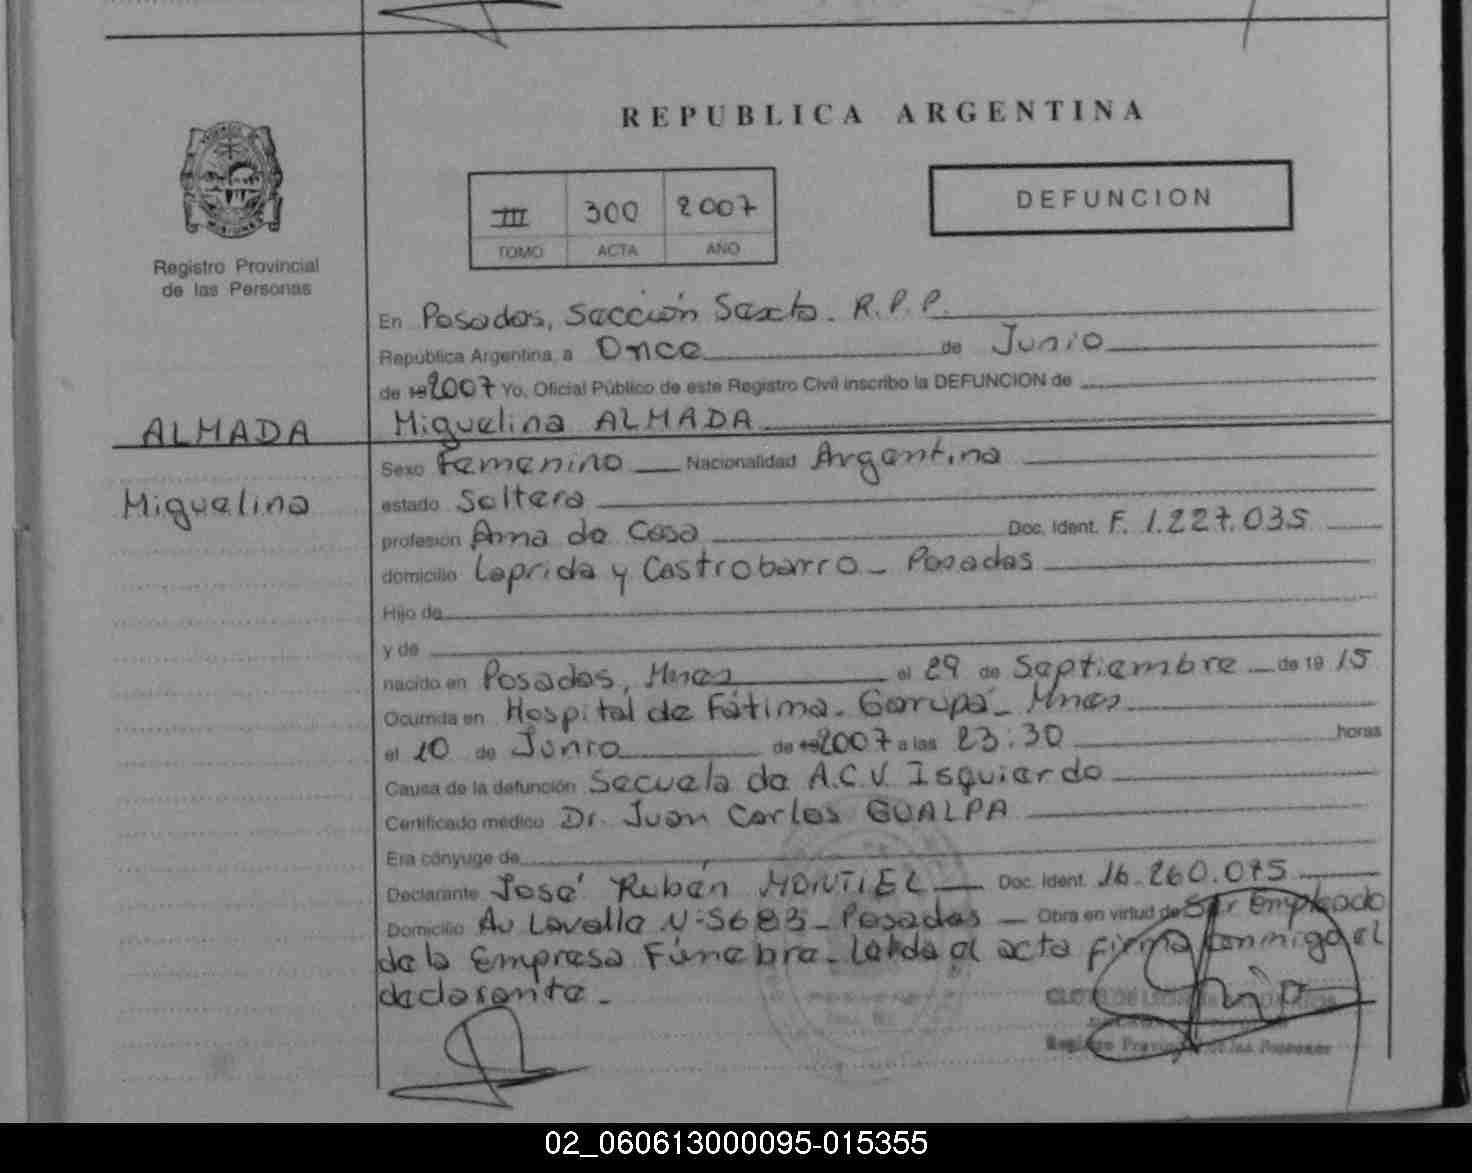 REPUBLICA ARGENTINA
III 300 2007
TOMO ACTA AÑO
DEFUNCION
Registro Provincial
de las Personas
En Posadas, Sección Sexta. R.P.P.
República Argentina, a Once de Junio
de 19 2007 Yo, Oficial Público de este Registro Civil inscribo la DEFUNCION de
ALMADA
Miguelina
Miguelina ALMADA
Sexo Femenino Nacionalidad Argentina
estado Soltera
profesión Ama de Casa Doc. Ident. F. 1.227.035
domicilio Laprida y Castrobarro - Posadas
Hijo de
y de
nacido en Posadas, Mnes el 29 de Septiembre de 19 15
Ocurrida en Hospital de Fátima - Garupá - Mnes
el 10 de Junio de 19 2007 a las 23:30 horas
Causa de la defunción Secuela de A.C.V. Isquierdo
Certificado médico Dr. Juan Carlos GUALPA
Era cónyuge de
Declarante José Rubén MONTIEL Doc. Ident. 16.260.075
Domicilio Av Lavalle N=5683 - Posadas - Obra en virtud de Ser Empleado
de la Empresa Fúnebre - Leída el acta firma conmigo el
declarante -
Registro Provincial de las Personas
02_060613000095-015355